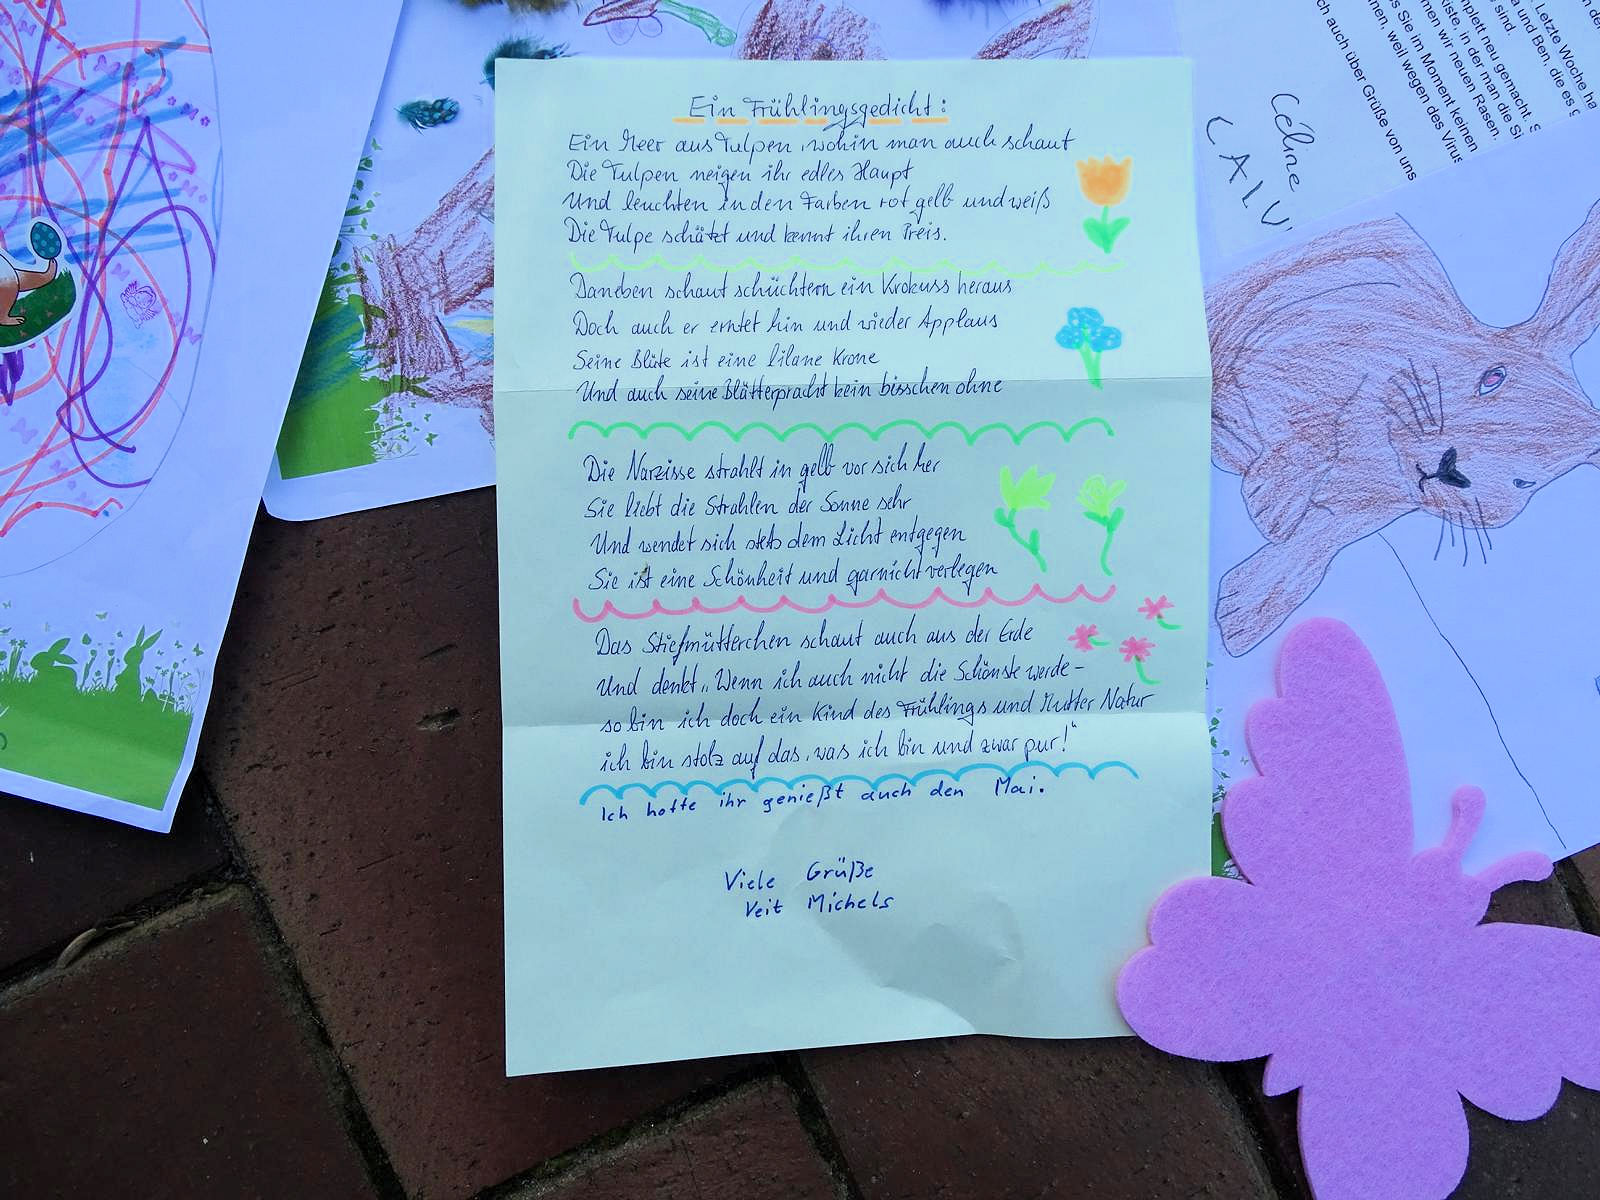 Ein Frühlingsgedicht:
Ein Meer aus Tulpen, wohin man auch schaut
Die Tulpen neigen ihr edles Haupt
Und leuchten in den Farben rot gelb und weiß
Die Tulpe schätzt und kennt ihren Preis.
Daneben schaut schüchtern ein Krokuss heraus
Doch auch er erntet hin und wieder Applaus
Seine Blüte ist eine lilane Krone
Und auch seine Blätterpracht kein bisschen ohne
Die Narzisse strahlt in gelb vor sich her
Sie liebt die Strahlen der Sonne sehr
Und wendet sich stets dem Licht entgegen
Sie ist eine Schönheit und garnicht verlegen
Das Stiefmütterchen schaut auch aus der Erde
Und denkt „Wenn ich auch nicht die Schönste werde-
so bin ich doch ein Kind des Frühlings und Mutter Natur
ich bin stolz auf das, was ich bin und zwar pur!"
Ich hoffe ihr genießt auch den Mai.
Viele Grüße
Veit Michels
Céline
CALV
Letzte Woche ha
a und Ben, die es g
sind.
mplett neu gemacht. S
kiste in der man die S
men wir neuen Rasen.
s Sie im Moment keinen
nen, weil wegen des Virus
ch auch über Grüße von uns